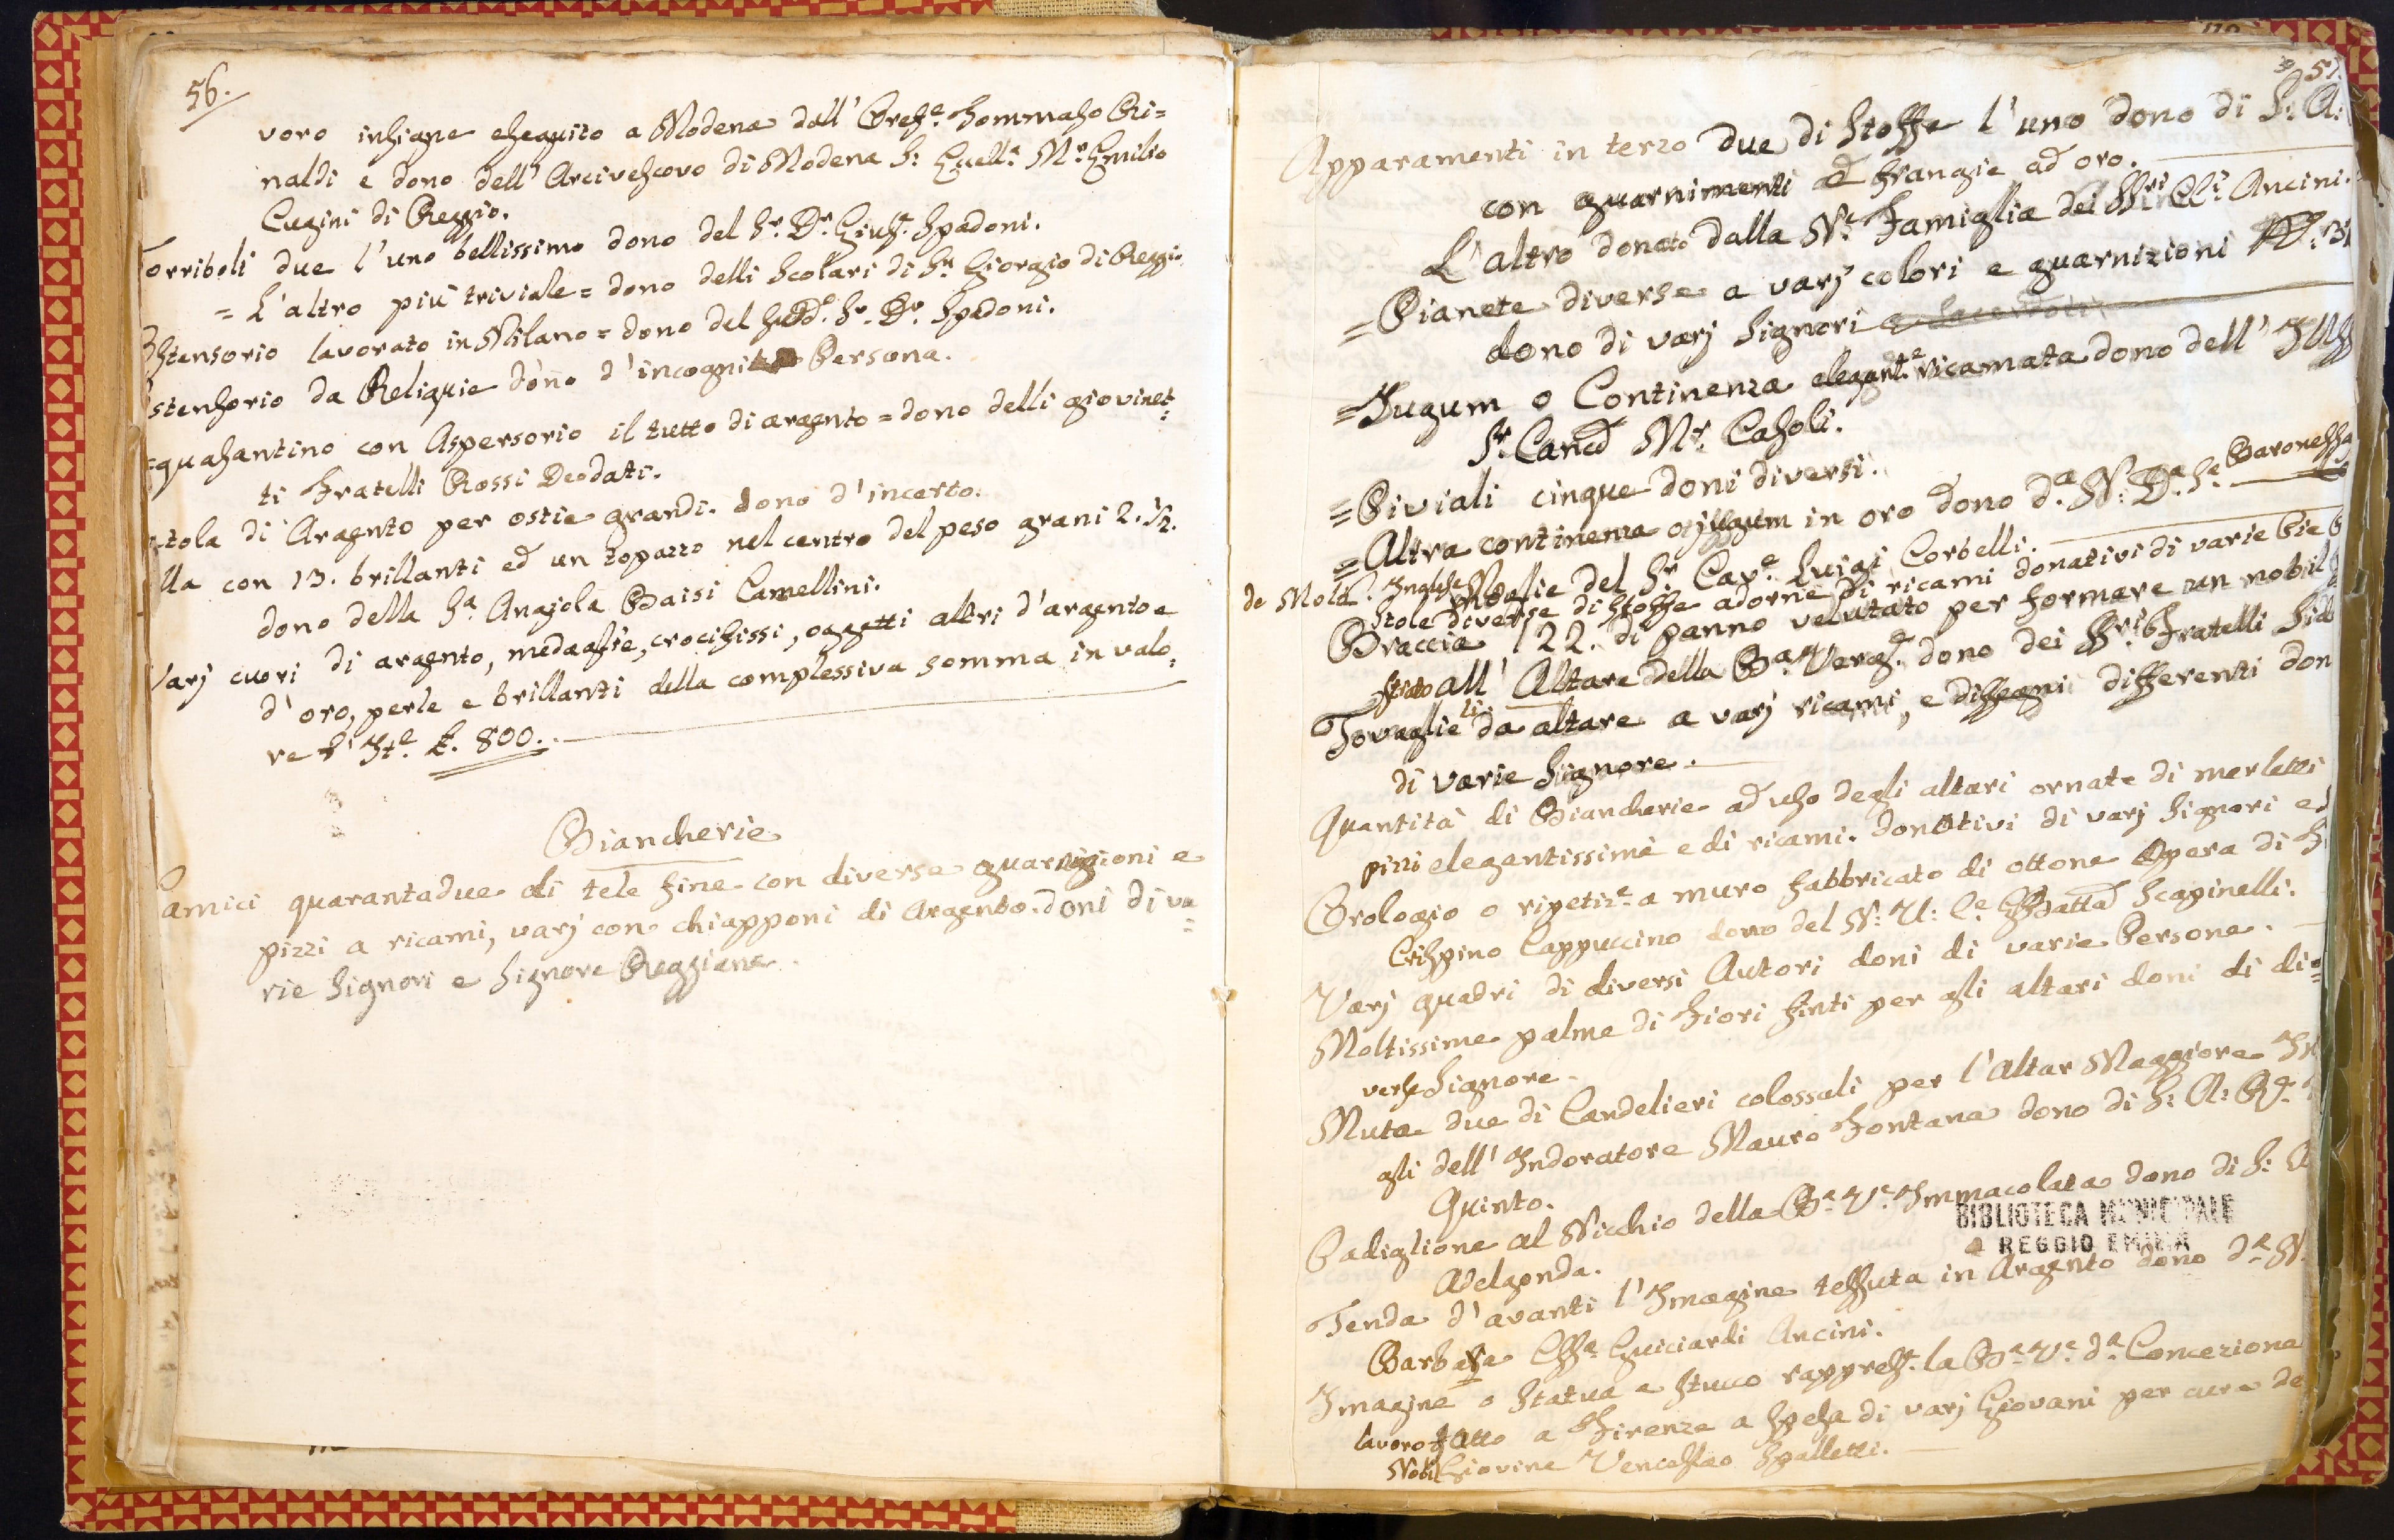 56.
voro insigne eseguito a Modena dall' Orefe. Tommaso Ri=
naldi e dono dell' Arcivescovo di Modena S: Eccell.a Mr. Emilio
Cugini di Reggio.
Torriboli due l'uno bellissimo dono del Sr. Dr. Gius.e Spadoni.
= L'altro più triviale = dono delli Scolari di Sn. Giorgio di Reggio
Ostensorio lavorato in Milano = dono del sudd.o Sr. Dr. Spadoni.
Ostensorio da Reliquie dono d'incognita Persona.
=quasantino con Aspersorio il tutto di argento = dono delli giovinet=
ti Fratelli Rossi Deodati.
tola di Argento per ostie grandi. dono d'incerto.
lla con 13. brillanti ed un topazzo nel centro del peso grani 2. 1/2.
dono della Sa. Angiola Baisi Camellini.
Varj cuori di argento, medaglie, crocifissi, oggetti altri d'argento e
d'oro, perle e brillanti della complessiva somma in valo=
re d' It.e £. 800.
Biancherie
Camici quarantadue di tele fine con diverse guarnigioni e
pizzi a ricami, varj con chiapponi di Argento. doni di va=
rie Signori e Signore Reggiane.
57.
Apparamenti in terzo due di stoffe l'uno dono di S: A:
con guarnimenti e frangie ad oro.
L'altro donato dalla N.e Famiglia dei SSri Cti. Ancini.
= Pianete diverse a varj colori e guarnizioni N.
dono di varj Signori e Sacerdoti
= Jugum o Continenza elegant.e ricamata dono dell' Ill
Sr. Canco Mr. Casoli.
= Piviali cinque doni diversi.
= Altra continenza o jugum in oro dono d.a N: D.a Sa. Baronessa
de Mold. Inglese Moglie del Sr. Cav.e Luigi Corbelli.
Stole diverse di stoffe adorne di ricami donativi di varie Pie
Braccia 122. di panno velutato per formare un nobil
strato all' Altare della Ba. Verg.e dono dei SSri Fratelli
Tovaglie da altare a varj ricami, e dissegni differenti don
di varie Signore.
Quantità di Biancherie ad uso degli altari ornate di merletti
pizzi elegantissimi e di ricami. donativi di varj Signori e
Orologio o ripetiz.e a muro fabbricato di ottone Opera di
Crispino Cappuccino dono del N: U: Ce. GBatta Scapinelli.
Varj quadri di diversi Autori doni di varie Persone.
Moltissime palme di Fiori finti per gli altari doni di di=
verse Signore.
Muta due di Candelieri colossali per l'Altar Maggiore In
gli dell' Indoratore Mauro Fontana dono di S: A: R.
Quinto.
Padiglione al Nicchio della B.a V.e Immacolata dono di S: A
Adelgonda.
Tenda d'avanti l'Imagine tessuta in Argento dono d.a N.
Barbara Cssa. Guiciardi Ancini.
Imagine o Statua a stucco rappres.te la B.a V.e d.a Concezione
lavoro fatto a Firenze a spesa di varj Giovani per cura de
Nobil Giovine Venceslao Spalletti.
BIBLIOTECA MUNICIPALE
REGGIO EMILIA